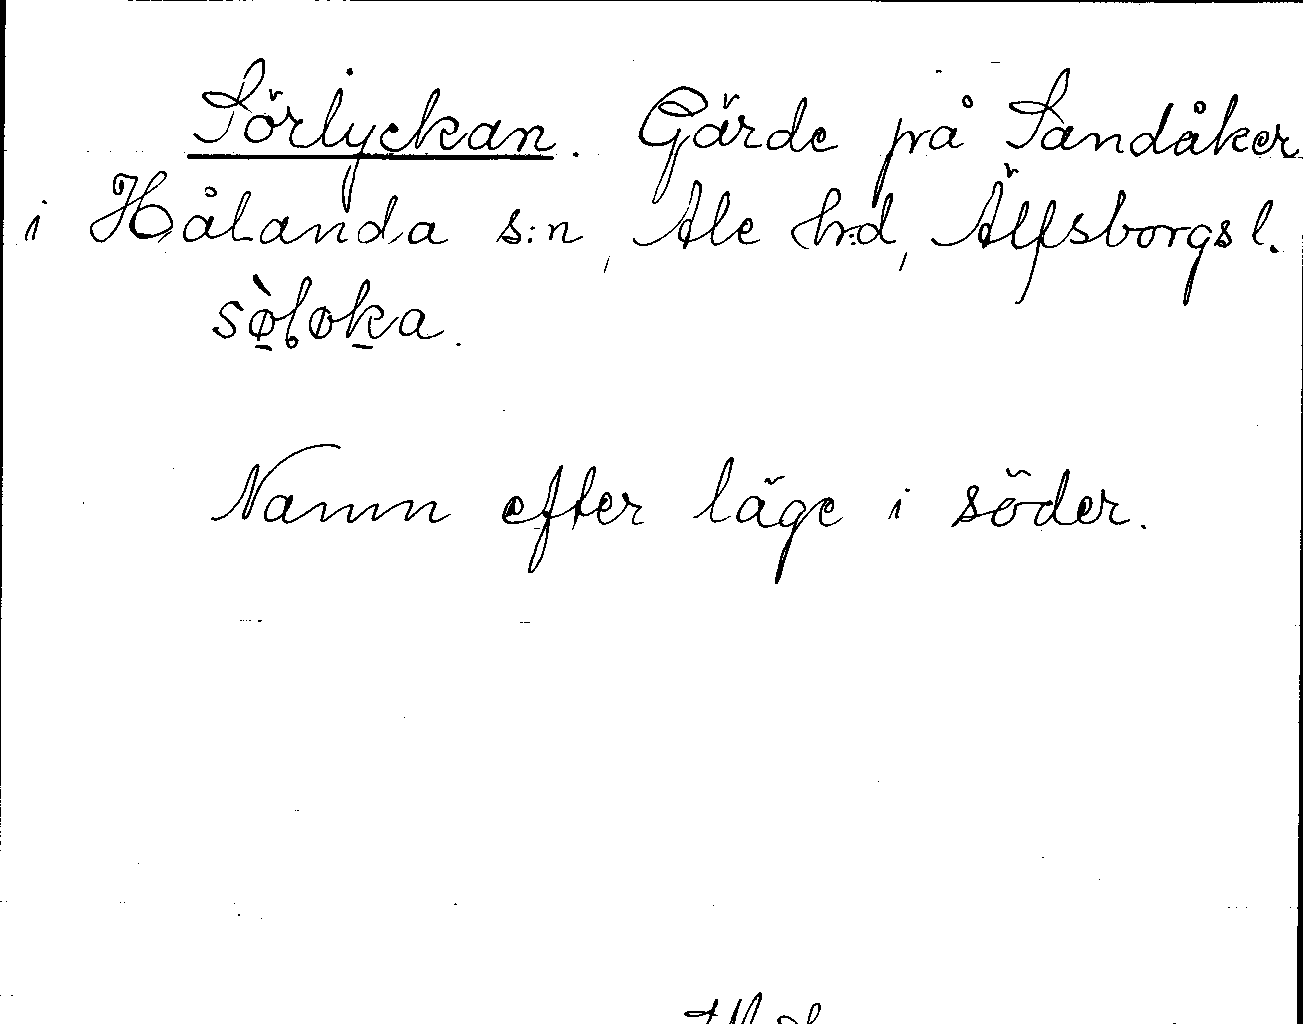 Sörlyckan. Gärde på Sandåker
i Hålanda s:n, Ale h:d, Älfsborgs l.
sø̠̀løka.
Namn efter läge i söder.